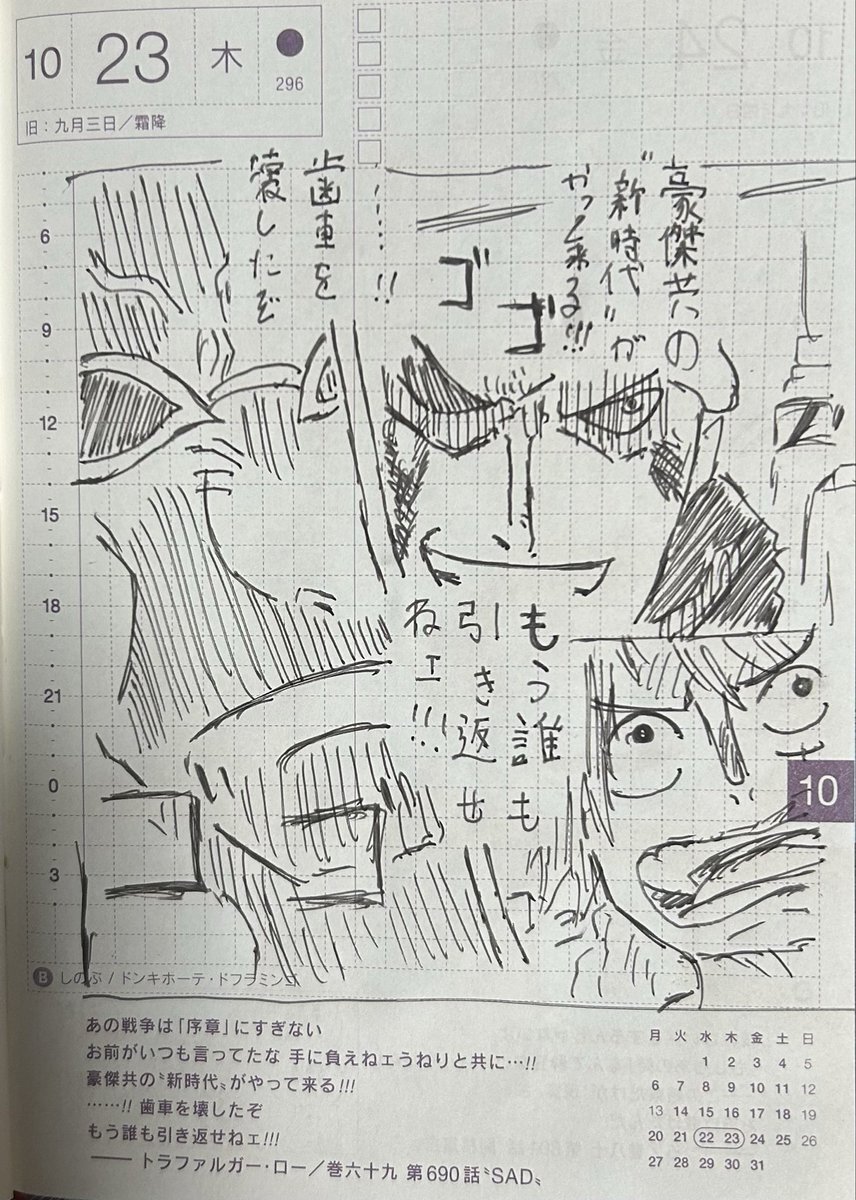 10
23
木
296
旧：九月三日／霜降
豪傑共の
“新時代”が
やって来る!!!
……!!
歯車を
壊したぞ
ゴゴ
もう誰も
引き返せ
ねェ!!!
6
9
12
15
18
21
0
3
10
B しのぶ / ドンキホーテ・ドフラミンゴ
あの戦争は「序章」にすぎない
お前がいつも言ってたな 手に負えねェうねりと共に…!!
豪傑共の〝新時代〟がやって来る!!!
……!! 歯車を壊したぞ
もう誰も引き返せねェ!!!
―― トラファルガー・ロー／巻六十九 第690話〝SAD〟
月 火 水 木 金 土 日
1 2 3 4 5
6 7 8 9 10 11 12
13 14 15 16 17 18 19
20 21 22 23 24 25 26
27 28 29 30 31